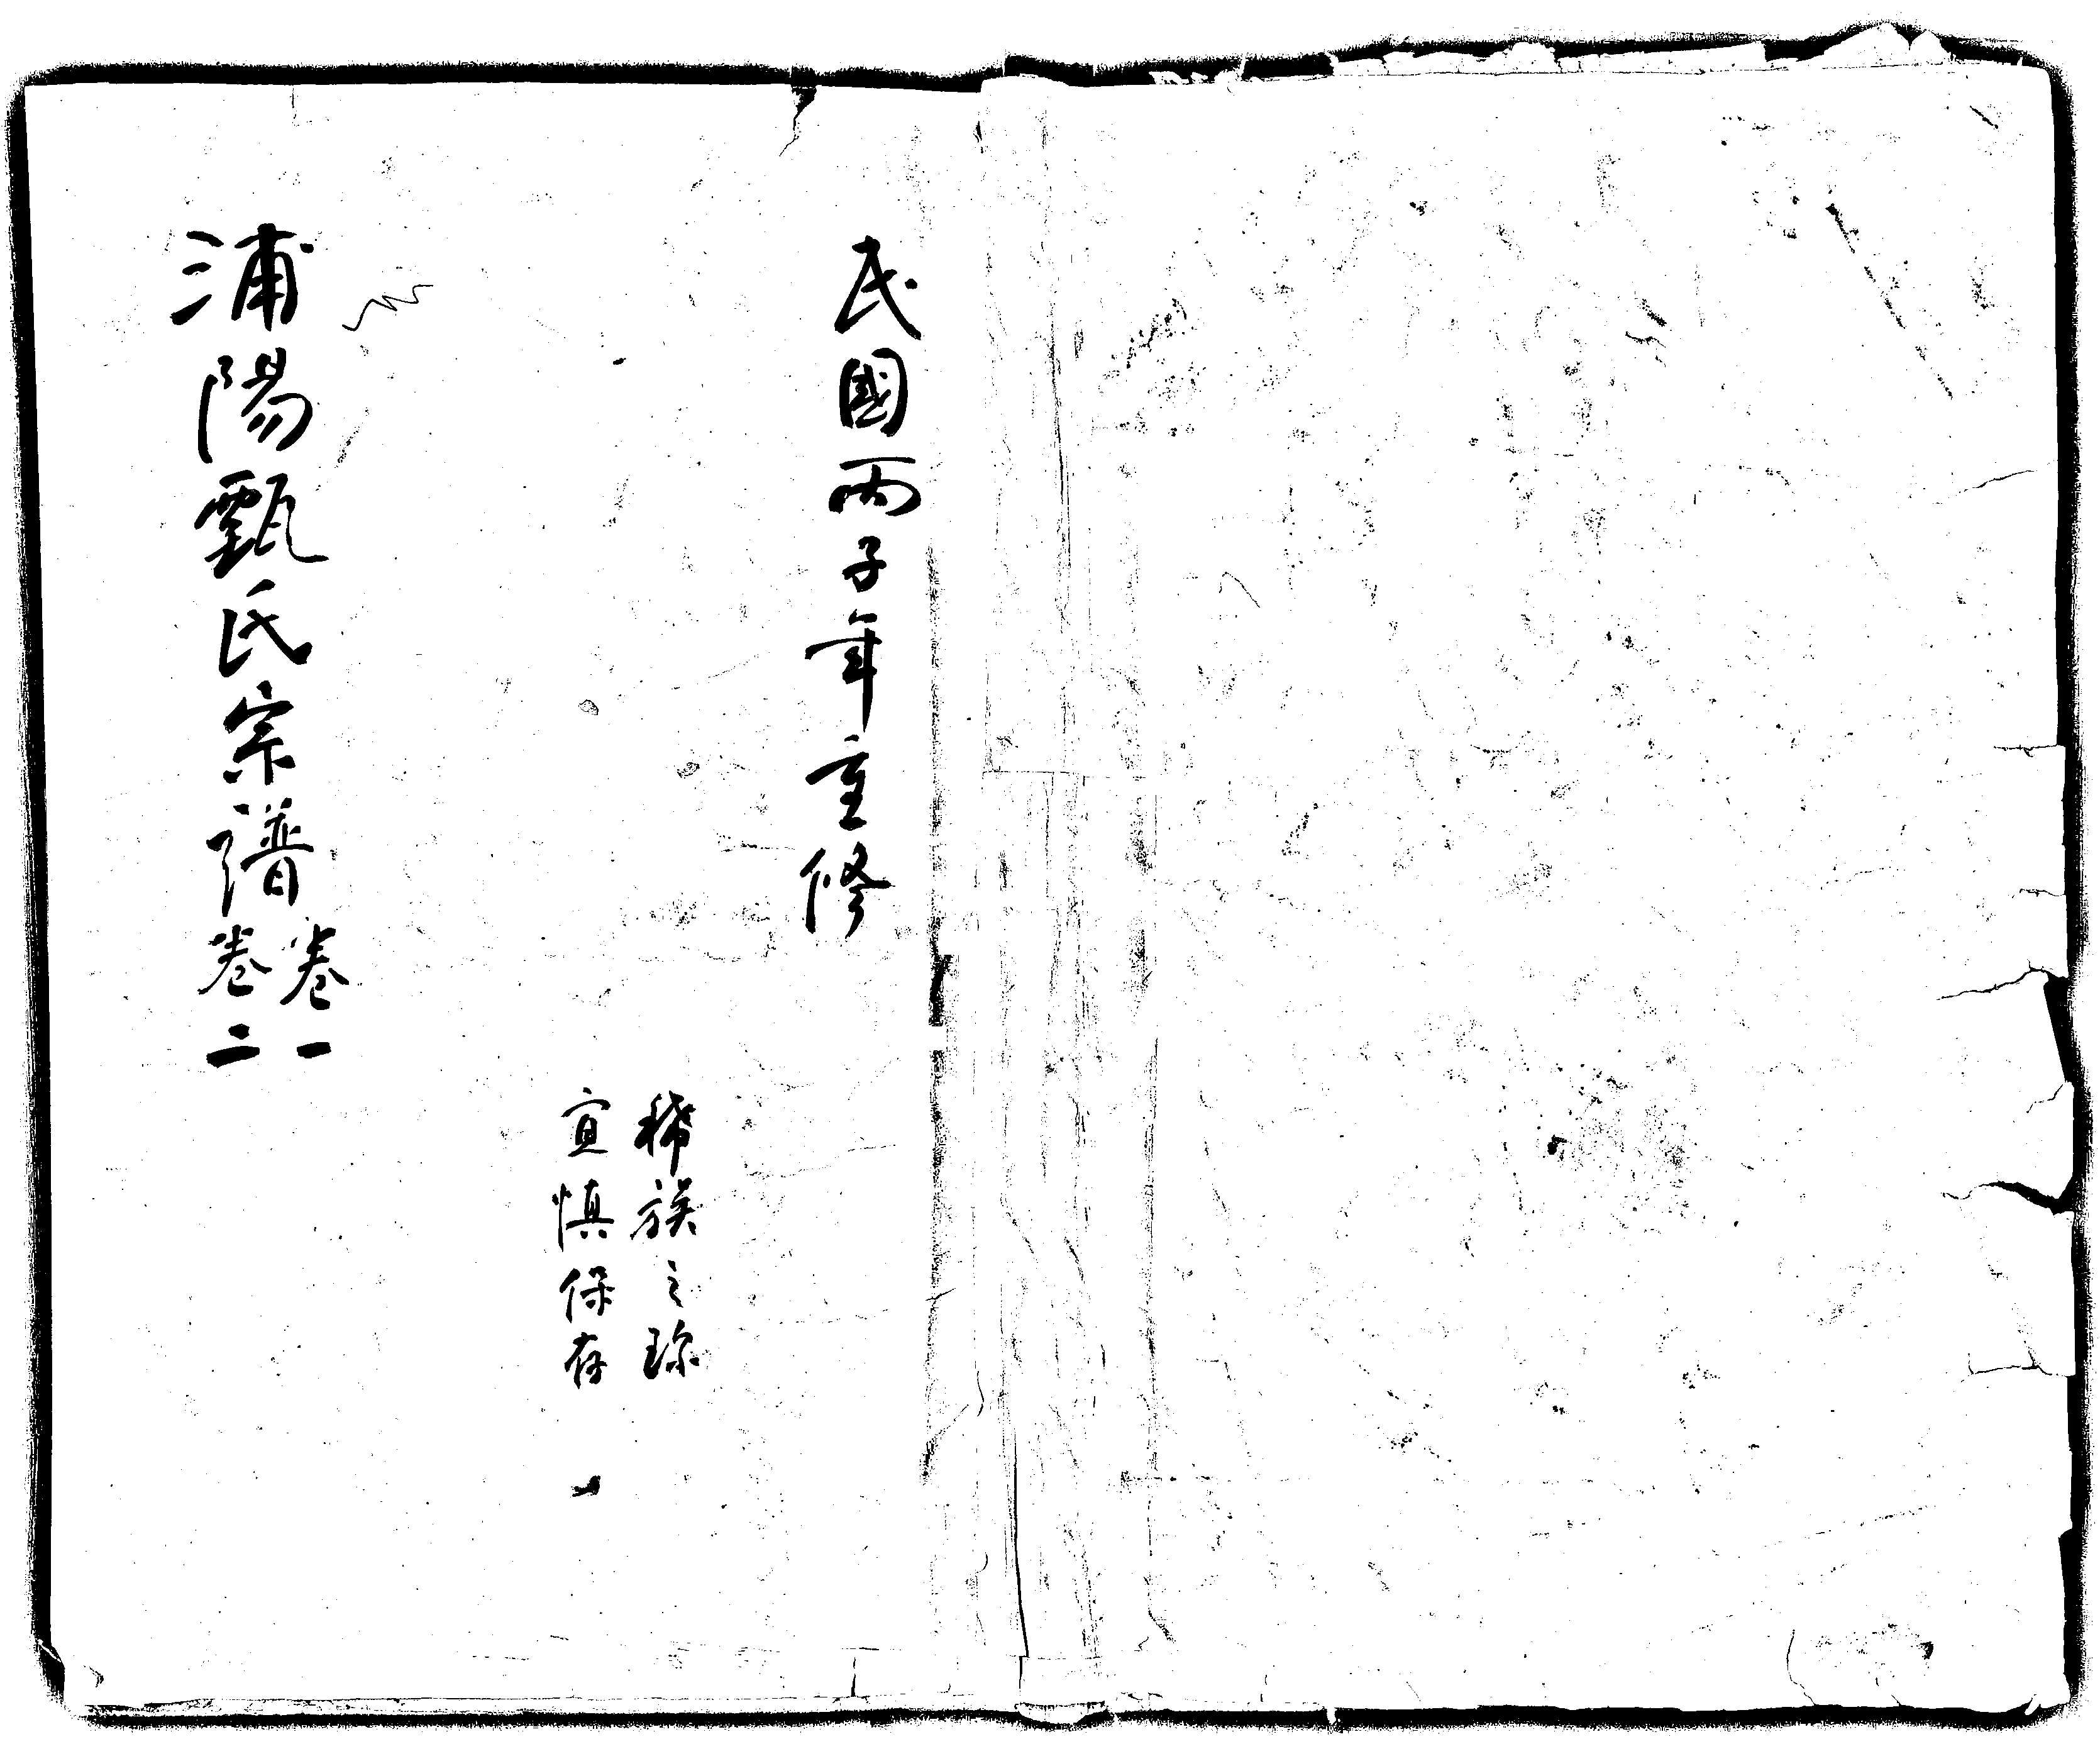 民國丙子年重修
稀族之珎
宜慎保存
浦陽甄氏宗譜
卷一
卷二